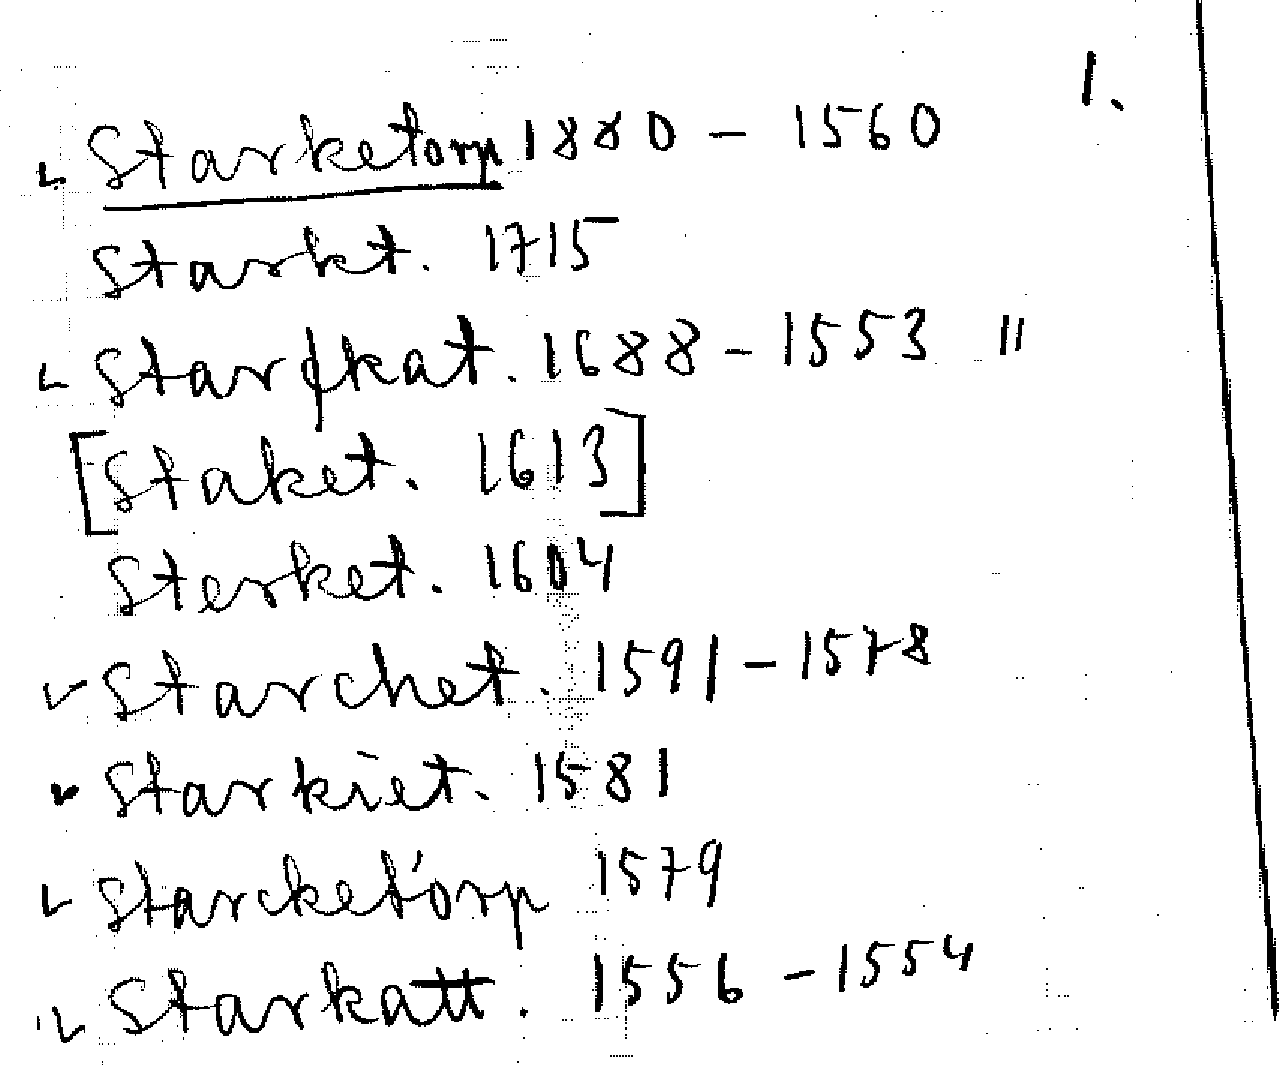 1.
Starketorp 1880 - 1560
Starkt. 1715
Starkat. 1688 - 1553 "
[Staket. 1613]
Sterket. 1604
Starchet. 1591 - 1578
Starkiet. 1581
Starcketorp 1579
Starkatt. 1556 - 1554